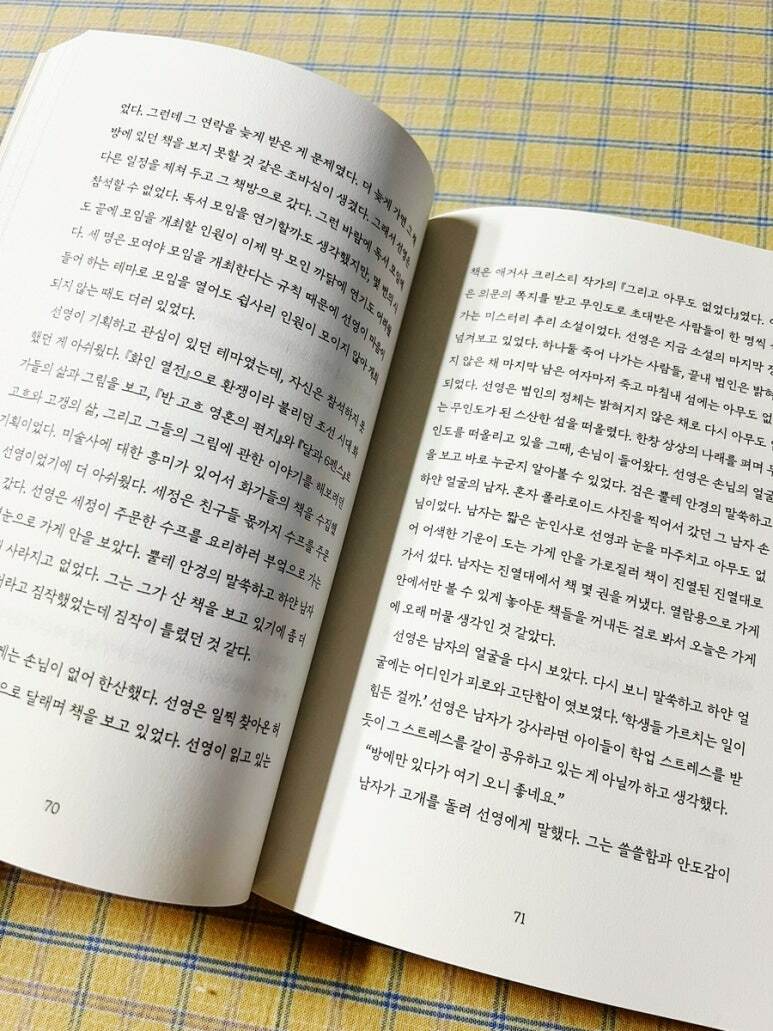 었다. 그런데 그 연락을 늦게 받은 게 문제였다. 더 늦게 가면 그 책
방에 있던 책을 보지 못할 것 같은 조바심이 생겼다. 그래서 선영은
다른 일정을 제쳐 두고 그 책방으로 갔다. 그런 바람에 독서 모임에
참석할 수 없었다. 독서 모임을 연기할까도 생각했지만, 몇 번의 시
도 끝에 모임을 개최할 인원이 이제 막 모인 까닭에 연기도 어려웠
다. 세 명은 모여야 모임을 개최한다는 규칙 때문에 선영이 마음에
들어 하는 테마로 모임을 열어도 쉽사리 인원이 모이지 않아 개최
되지 않는 때도 더러 있었다.
선영이 기획하고 관심이 있던 테마였는데, 자신은 참석하지 못
했던 게 아쉬웠다. 『화인 열전』으로 환쟁이라 불리던 조선 시대 화
가들의 삶과 그림을 보고, 『반 고흐 영혼의 편지』와 『달과 6펜스』로
고흐와 고갱의 삶, 그리고 그들의 그림에 관한 이야기를 해보려던
기획이었다. 미술사에 대한 흥미가 있어서 화가들의 책을 수집했
선영이었기에 더 아쉬웠다. 세정은 친구들 몫까지 수프를 주문
갔다. 선영은 세정이 주문한 수프를 요리하러 부엌으로 가는
눈으로 가게 안을 보았다. 뿔테 안경의 말쑥하고 하얀 남자
사라지고 없었다. 그는 그가 산 책을 보고 있기에 좀 더
짐작했었는데 짐작이 틀렸던 것 같다.
손님이 없어 한산했다. 선영은 일찍 찾아온 허
으로 달래며 책을 보고 있었다. 선영이 읽고 있는
70
책은 애거사 크리스티 작가의 『그리고 아무도 없었다』였다.
은 의문의 쪽지를 받고 무인도로 초대받은 사람들이 한 명씩
가는 미스터리 추리 소설이었다. 선영은 지금 소설의 마지막
넘겨보고 있었다. 하나둘 죽어 나가는 사람들, 끝내 범인은 밝혀
지 않은 채 마지막 남은 여자마저 죽고 마침내 섬에는 아무도 없
되었다. 선영은 범인의 정체는 밝혀지지 않은 채로 다시 아무도
는 무인도가 된 스산한 섬을 떠올렸다. 한창 상상의 나래를 펴며
인도를 떠올리고 있을 그때, 손님이 들어왔다. 선영은 손님의 얼굴
을 보고 바로 누군지 알아볼 수 있었다. 검은 뿔테 안경의 말쑥하고
하얀 얼굴의 남자. 혼자 폴라로이드 사진을 찍어서 갔던 그 남자 손
님이었다. 남자는 짧은 눈인사로 선영과 눈을 마주치고 아무도 없
어 어색한 기운이 도는 가게 안을 가로질러 책이 진열된 진열대로
가서 섰다. 남자는 진열대에서 책 몇 권을 꺼냈다. 열람용으로 가게
안에서만 볼 수 있게 놓아둔 책들을 꺼내든 걸로 봐서 오늘은 가게
에 오래 머물 생각인 것 같았다.
선영은 남자의 얼굴을 다시 보았다. 다시 보니 말쑥하고 하얀 얼
굴에는 어디인가 피로와 고단함이 엿보였다. ‘학생들 가르치는 일이
힘든 걸까.’ 선영은 남자가 강사라면 아이들이 학업 스트레스를 받
듯이 그 스트레스를 같이 공유하고 있는 게 아닐까 하고 생각했다.
“방에만 있다가 여기 오니 좋네요.”
남자가 고개를 돌려 선영에게 말했다. 그는 쓸쓸함과 안도감이
71